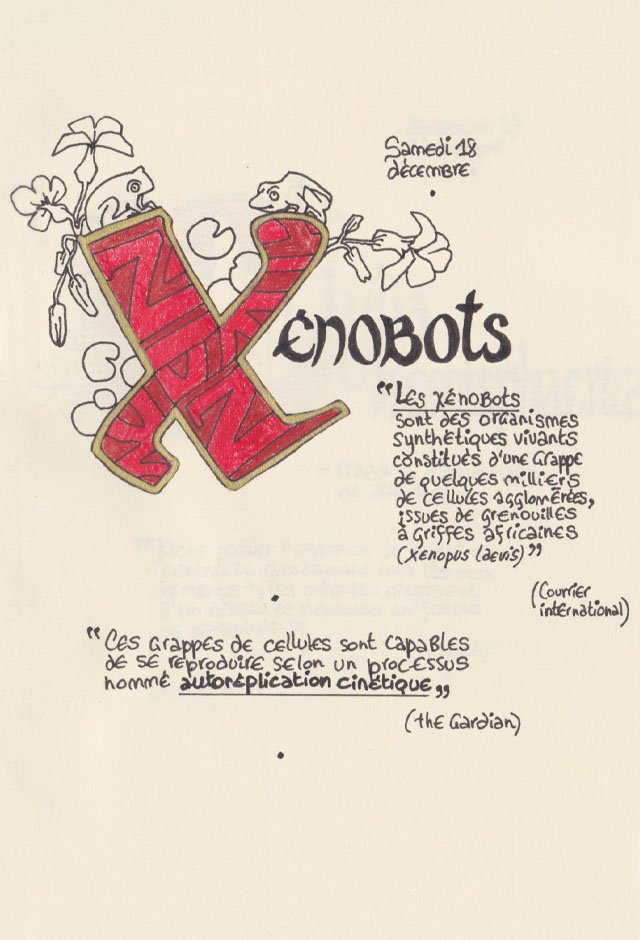 Samedi 18
décembre
.
Xénobots
“Les xénobots
sont des organismes
synthétiques vivants
constitués d'une grappe
de quelques milliers
de cellules agglomérées,
issues de grenouilles
à griffes africaines
(Xenopus laevis)”
(Courrier
international)
“Ces grappes de cellules sont capables
de se reproduire selon un processus
nommé autoréplication cinétique”
(the Gardian)